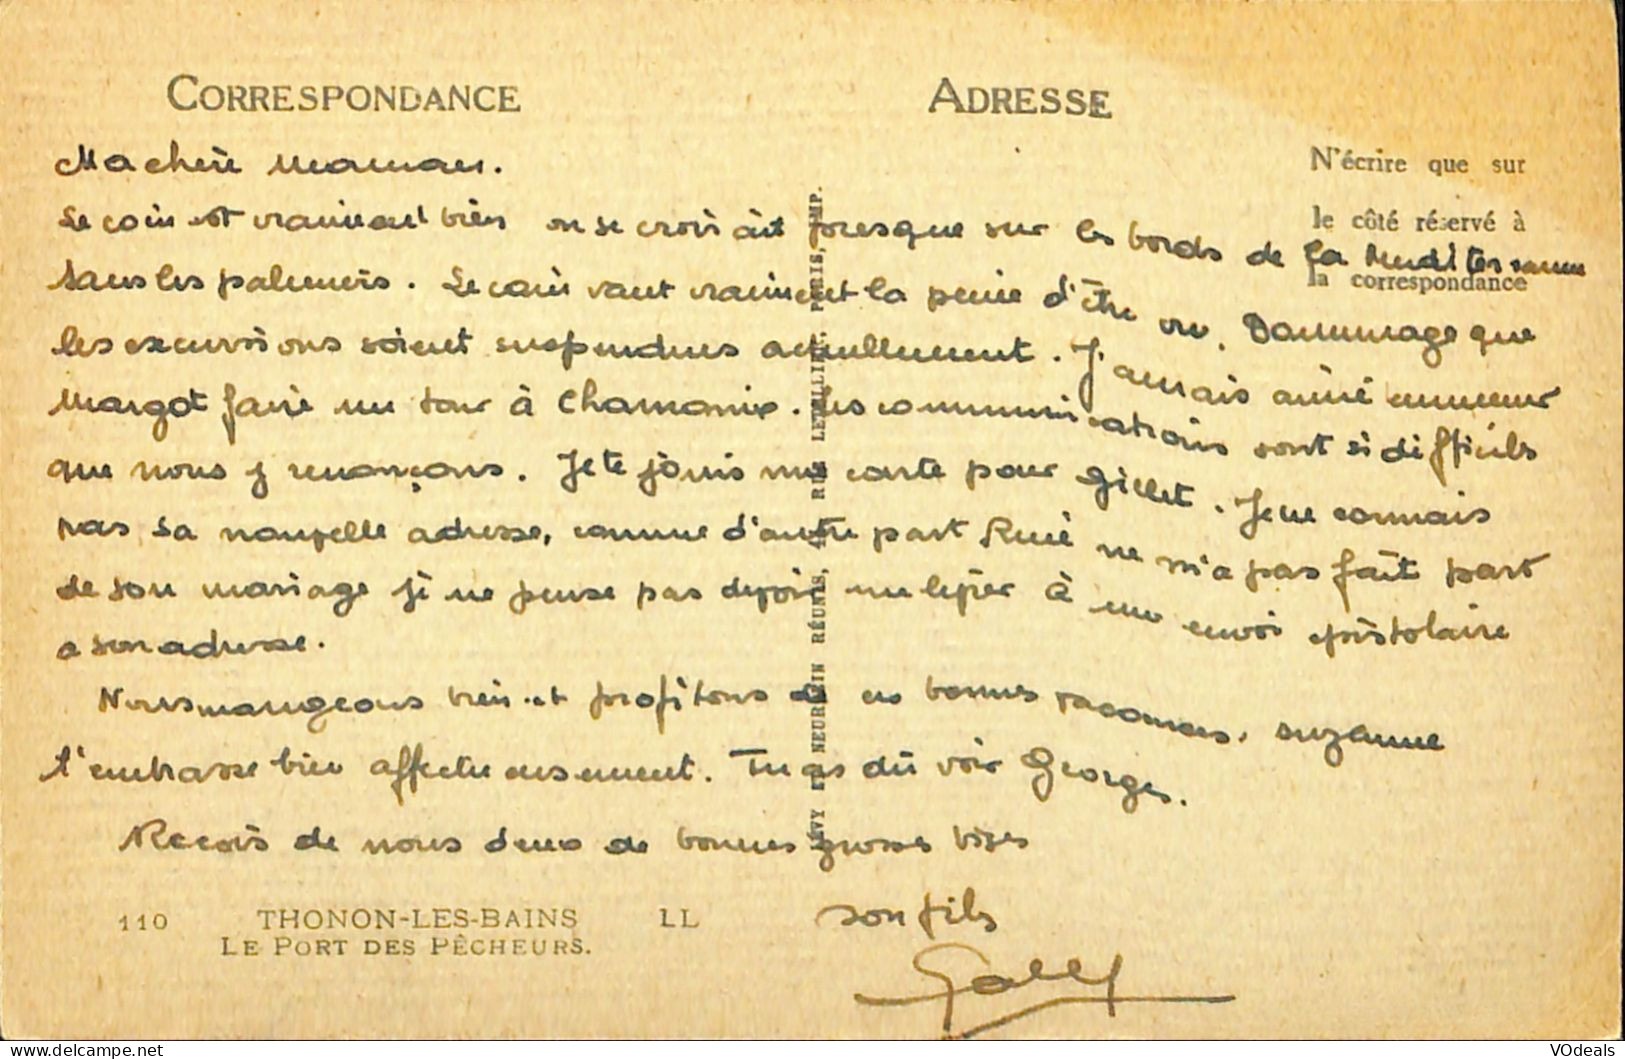 CORRESPONDANCE
ADRESSE
N'écrire que sur
le côté réservé à
la correspondance
Ma chère maman.
Le coin est vraiment bien on se croirait presque sur les bords de la Méditerranée
sans les palmiers. Le coin vaut vraiment la peine d'être vu. Dommage que
les excursions soient suspendues actuellement. J'aurais aimé emmener
Margot faire un tour à Chamonix. Les communications sont si difficiles
que nous y renonçons. Je te joins une carte pour Gillet. Je ne connais
pas sa nouvelle adresse, comme d'autre part René ne m'a pas fait part
de son mariage je ne pense pas devoir me livrer à un envoi épistolaire
a son adresse.
Nous mangeons bien et profitons de ces bonnes vacances. Suzanne
t'embrasse bien affectueusement. Tu as dû voir Georges.
Reçois de nous deux de bonnes grosses bises
son fils
LÉVY ET NEURDEIN RÉUNIS, RUE LETELLIER, PARIS, IMP.
110 THONON-LES-BAINS LL
LE PORT DES PÊCHEURS.
© VOdeals
VOdeals